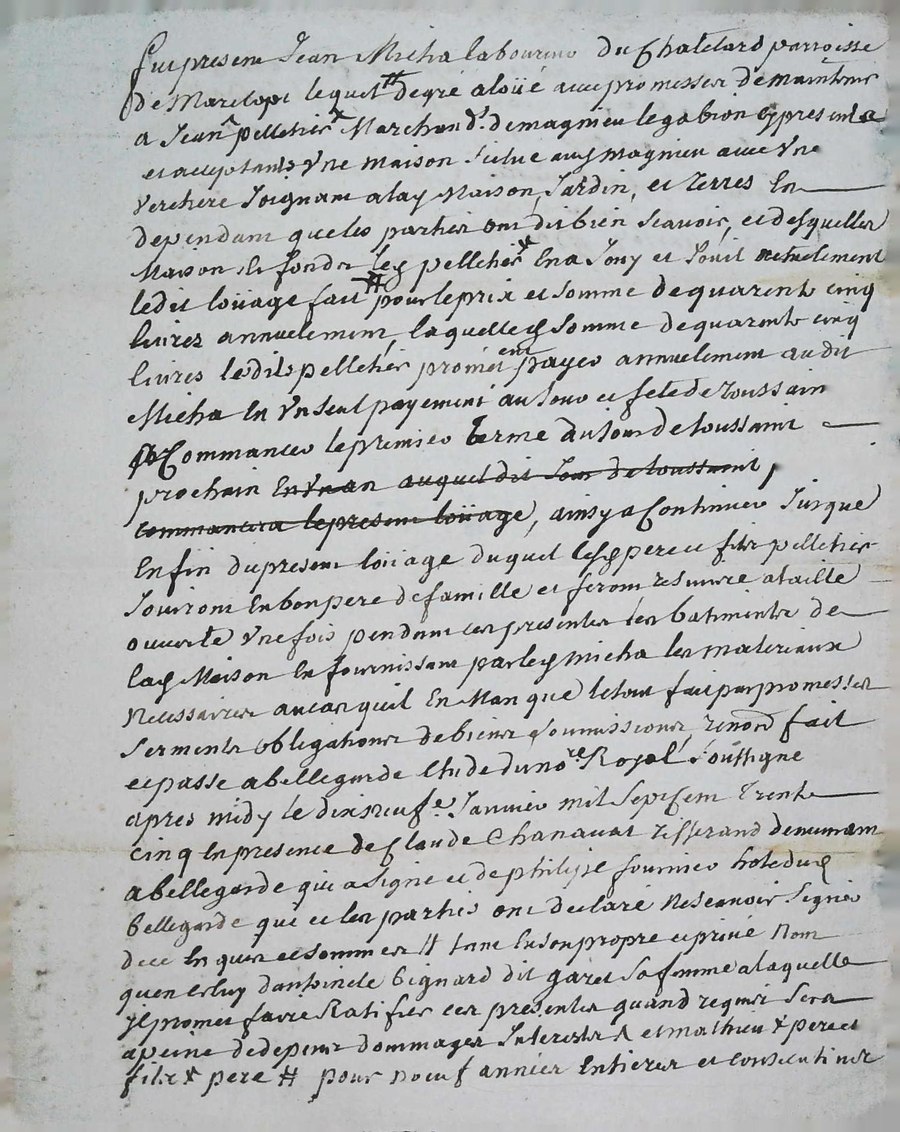 fut present Jean Micha laboureur du Chatelard parroisse
de Marclopt lequel # degré a loüé avec promesses de maintenir
a Jean ^ pelletier ^ Marchand ds. de magnieu le gabion cy present
et acceptants Vne maison scitue audt magnieu avec Vne
Verchere Joignant a lad maison, Jardin, et Terres En
dependant que les parties ont dit bien scavoir, et desquelles
Maison et fonds led pelletier x En a Jouy et Jouit actuelement
ledit loüage fait # pour le prix et somme de quarente cinq
livres annuelement, laquelle d somme de quarente cinq
livres lesdits pelletier promettent payer annuelement audit
Micha En Vn seul payement au Jour et fete de Toussain
a Commancer le premier terme du Jour de toussaint
prochain En Vn an auquel dit Jour de toussaint,
commancera le present loüage, ainsy a Continuer Jusque
En fin du present loüage duquel lesd pere et fils pelletier
Jouiront En bon pere de famille et feront resuivre a taille
ouverte Vne fois pendant ces presentes les batiments de
lad Maison En fournissant par led micha les materiaux
Necessaires au cas quil En Manque le tout fait par promesses
serments obligations de biens soumissions, renond fait
et passé a bellegarde Etude du nore Royal soussigne
apres midy le dix neufe Janvier mil sept Cent Trente
cinq En presence de Claude Chanavat Tisserand demurant
a bellegarde qui a signe et de philipe fournier hote dud
bellegarde qui et les parties ont declaré ne scavoir signer
de ce Enquis et sommes // tant En son propre et privé nom
quen celuy dantoinete Bignard dit garet sa femme a laquelle
Il promet faire Ratifier ces presentes quand requis sera
a peine de depens dommages Interests ^ et mathieu x pere et
fils x pere # pour noeuf années Entieres et consecutives